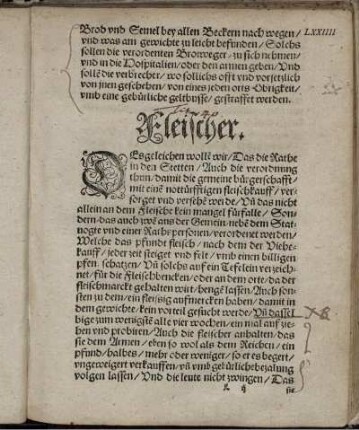 LXXIIII
Brod vnd Semel bey allen Beckern nach wegen /
vnd was am gewichte zu leicht befunden / Solchs
sollen die verordenten Brotweger / zu sich nehmen /
vnd in die Hospitalien / oder den armen geben / Vnd
sollē die verbrecher / wo sollichs offt vnd vorsetzlich
von jnen geschehen / von eines jeden orts Obrigken /
vmb eine gebürliche geltbusse / gestraffet werden.
Fleischer.
DEsgeleichen wollē wir / Das die Rathe
in den Stetten / Auch die verordnung
thun / damit die gemeine bürgerschafft /
mit einē notturfftigen fleischkauff / ver-
sorget vnd versehē werde / Vn̄ das nicht
allein an dem Fleische kein mangel fürfalle / Son-
dern / das auch zwē aus der Gemein / nebē dem Stat-
uogte vnd einer Rathspersonen / verordenet werden /
Welche das pfundt fleisch / nach dem der Viehe-
kauff / jeder zeit steiget vnd felt / vmb einen billigen
pfen. schatzen / Vn̄ solchs auff ein Tefelein verzeich-
net / für die Fleischbencken / oder an dem orte / da der
fleischmarckt gehalten wirt / hengē lassen / Auch son-
sten zu dem / ein fleissig auffmercken haben / damit in
dem gewichte / kein vorteil gesucht werde / Vn̄ dassel-
bige zum wenigstē alle vier wochen / ein mal auff zie-
hen vnd probiren / Auch die fleischer anhalten / das
sie dem Armen / eben so wol als dem Reichen / ein
pfund / halbes / mehr oder weniger / so er es begert /
vngeweigert verkauffen / vn̄ vmb gebürliche bezalung
volgen lassen / Vnd die leute nicht zwingen / Das
sie